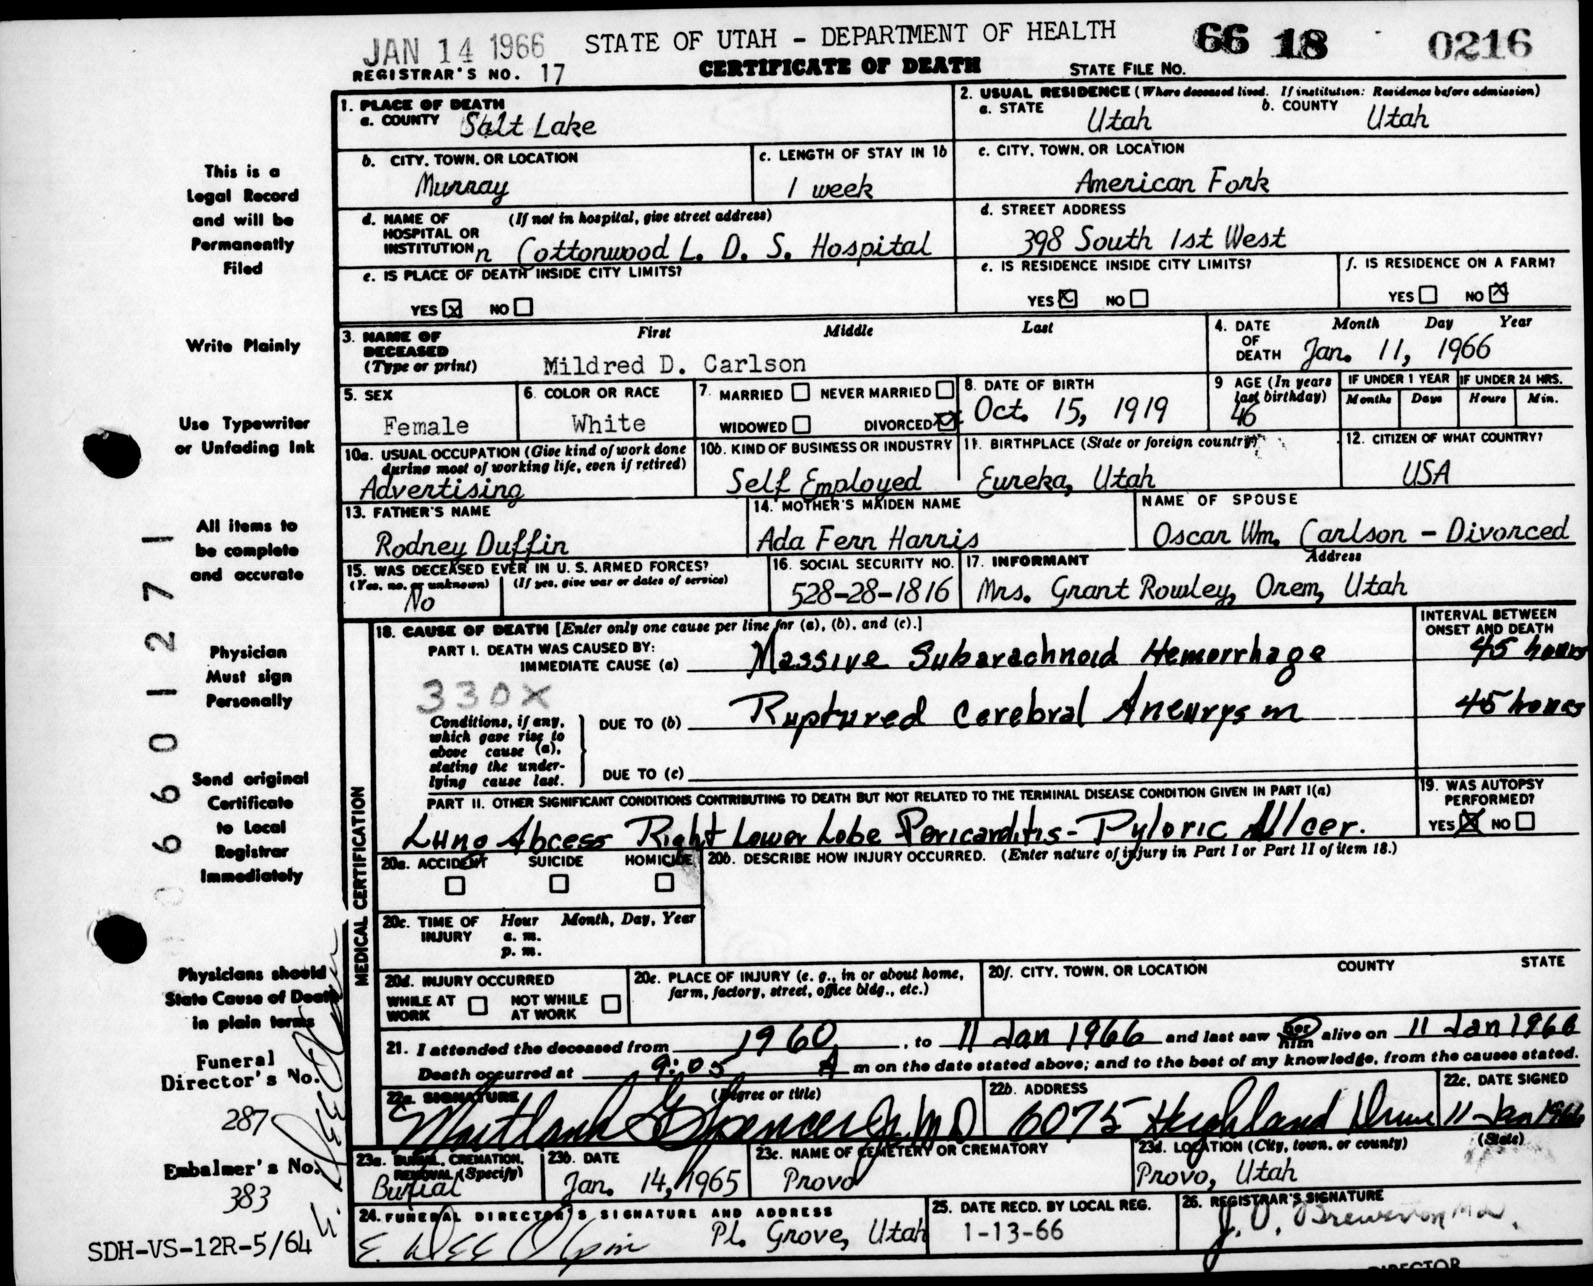 JAN 14 1966 STATE OF UTAH - DEPARTMENT OF HEALTH 66 18 0216
REGISTRAR'S NO. 17 CERTIFICATE OF DEATH STATE FILE NO.
1. PLACE OF DEATH
a. COUNTY Salt Lake
2. USUAL RESIDENCE (Where deceased lived. If institution: Residence before admission)
a. STATE Utah b. COUNTY Utah
b. CITY, TOWN, OR LOCATION Murray
c. LENGTH OF STAY IN 1b 1 week
c. CITY, TOWN, OR LOCATION
American Fork
d. NAME OF HOSPITAL OR INSTITUTION (If not in hospital, give street address)
n Cottonwood L. D. S. Hospital
d. STREET ADDRESS
398 South 1st West
e. IS PLACE OF DEATH INSIDE CITY LIMITS?
YES X NO
e. IS RESIDENCE INSIDE CITY LIMITS?
YES X NO
f. IS RESIDENCE ON A FARM?
YES NO X
3. NAME OF DECEASED (Type or print) First Middle Last
Mildred D. Carlson
4. DATE OF DEATH Month Day Year
Jan. 11, 1966
5. SEX
Female
6. COLOR OR RACE
White
7. MARRIED NEVER MARRIED
WIDOWED DIVORCED X
8. DATE OF BIRTH
Oct. 15, 1919
9 AGE (In years last birthday)
46
IF UNDER 1 YEAR IF UNDER 24 HRS.
Months Days Hours Min.
10a. USUAL OCCUPATION (Give kind of work done during most of working life, even if retired)
Advertising
10b. KIND OF BUSINESS OR INDUSTRY
Self Employed
11. BIRTHPLACE (State or foreign country)
Eureka, Utah
12. CITIZEN OF WHAT COUNTRY?
USA
13. FATHER'S NAME
Rodney Duffin
14. MOTHER'S MAIDEN NAME
Ada Fern Harris
NAME OF SPOUSE
Oscar Wm. Carlson - Divorced
15. WAS DECEASED EVER IN U. S. ARMED FORCES?
(Yes, no, or unknown) (If yes, give war or dates of service)
No
16. SOCIAL SECURITY NO.
528-28-1816
17. INFORMANT Address
Mrs. Grant Rowley, Orem, Utah
MEDICAL CERTIFICATION
18. CAUSE OF DEATH [Enter only one cause per line for (a), (b), and (c).]
INTERVAL BETWEEN ONSET AND DEATH
PART I. DEATH WAS CAUSED BY:
IMMEDIATE CAUSE (a) Massive Subarachnoid Hemorrhage 45 hours
330X
Conditions, if any, which gave rise to above cause (a), stating the underlying cause last.
DUE TO (b) Ruptured Cerebral Aneurysm 45 hours
DUE TO (c)
PART II. OTHER SIGNIFICANT CONDITIONS CONTRIBUTING TO DEATH BUT NOT RELATED TO THE TERMINAL DISEASE CONDITION GIVEN IN PART I(a)
Lung Abcess Right Lower Lobe - Pericarditis - Pyloric Ulcer.
19. WAS AUTOPSY PERFORMED?
YES X NO
20a. ACCIDENT SUICIDE HOMICIDE
20b. DESCRIBE HOW INJURY OCCURRED. (Enter nature of injury in Part I or Part II of item 18.)
20c. TIME OF INJURY Hour Month, Day, Year
a. m.
p. m.
20d. INJURY OCCURRED
WHILE AT WORK NOT WHILE AT WORK
20e. PLACE OF INJURY (e. g., in or about home, farm, factory, street, office bldg., etc.)
20f. CITY, TOWN, OR LOCATION COUNTY STATE
21. I attended the deceased from 1960, to 11 Jan 1966 and last saw her him alive on 11 Jan 1966
Death occurred at 9:05 A m on the date stated above; and to the best of my knowledge, from the causes stated.
22a. SIGNATURE (Degree or title)
Maitland G Spencer Jr. MD
22b. ADDRESS
6075 Highland Drive
22c. DATE SIGNED
11 Jan 1966
23a. BURIAL, CREMATION, REMOVAL (Specify)
Burial
23b. DATE
Jan. 14, 1965
23c. NAME OF CEMETERY OR CREMATORY
Provo
23d. LOCATION (City, town, or county) (State)
Provo, Utah
24. FUNERAL DIRECTOR'S SIGNATURE AND ADDRESS
E. Dee Olpin Pl. Grove, Utah
25. DATE RECD. BY LOCAL REG.
1-13-66
26. REGISTRAR'S SIGNATURE
J. O. Brewerton MD.
DIRECTOR
This is a
Legal Record
and will be
Permanently
Filed
Write Plainly
Use Typewriter
or Unfading Ink
All items to
be complete
and accurate
Physician
Must sign
Personally
Send original
Certificate
to Local
Registrar
Immediately
Physicians should
State Cause of Death
in plain terms
Funeral
Director's No.
287
Embalmer's No.
383
SDH-VS-12R-5/64
0 6 6 0 1 2 7 1